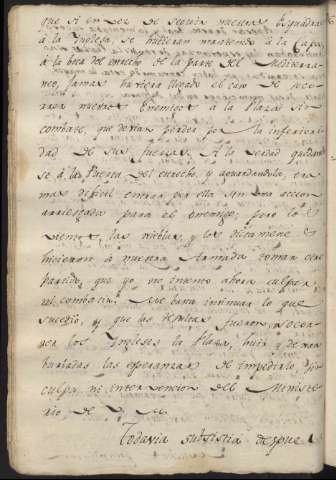 que si en vez de seguir nuestra Esquadra
á la Inglesa, se huviera mantenido á la Capa
á la boca del estrecho de la parte del Mediterra
neo, jamas huviera llegado el caso de que
nuestros Enemigos á la Plaza sin
combate, que devian perder por la inferiori
dad de sus fuerzas. A la verdad quedan
se á la Puerta del estrecho, y aguardandola, era
mas dificil entrar por ella sin una accion
arriesgada para el enemigo; pero los
vientos, las nieblas, y los dictamenes
hicieron á nuestra Armada tomar otro
partido, que yo no intento ahora culpar,
ni combatir. Me basta insinuar lo que
sucedió, y que las resultas fueron, socor
rer los Ingleses la Plaza, huir, y dexar
burladas las esperanzas de impedirlo, sin
culpa, ni intervencion del Ministe
rio de
Todavia subsistia despues